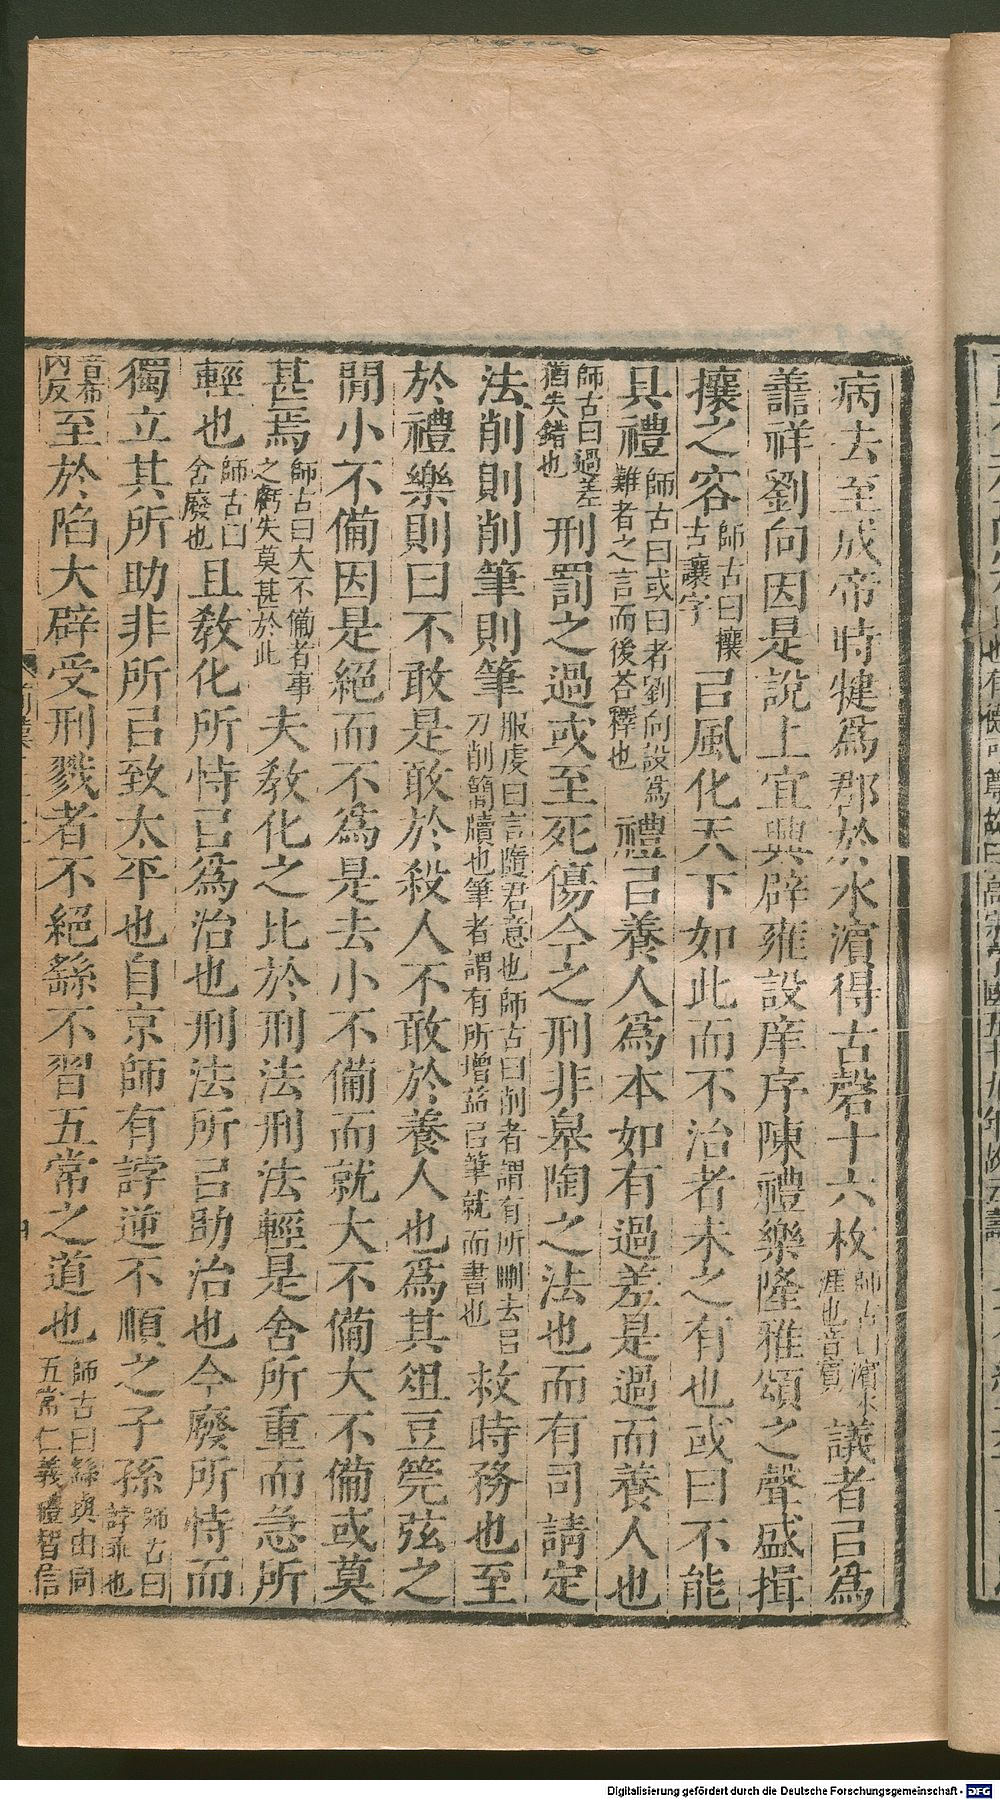 病去至成帝時犍爲郡於水濵得古磬十六枚師古曰濵水涯也音賓議者㠯爲
善祥劉向因是說上宜興辟雍設庠序陳禮樂隆雅頌之聲盛揖
攘之容師古曰攘古讓字㠯風化天下如此而不治者未之有也或曰不能
具禮師古曰或曰者劉向設爲難者之言而後荅釋也禮㠯養人爲本如有過差是過而養人也
師古曰過差猶失錯也刑罰之過或至死傷今之刑非臯陶之法也而有司請定
法削則削筆則筆服虔曰言隨君意也師古曰削者謂有所刪去㠯刀削簡牘也筆者謂有所增益㠯筆就而書也救時務也至
於禮樂則曰不敢是敢於殺人不敢於養人也爲其俎豆筦弦之
閒小不備因是絕而不爲是去小不備而就大不備大不備或莫
甚焉師古曰大不備者事之虧失莫甚於此夫敎化之比於刑法刑法輕是舍所重而急所
輕也師古曰舍廢也且敎化所恃㠯爲治也刑法所㠯助治也今廢所恃而
獨立其所助非所㠯致太平也自京師有誖逆不順之子孫師古曰誖乖也
音布內反至於陷大辟受刑戮者不絕繇不習五常之道也師古曰繇與由同五常仁義禮智信
Digitalisierung gefördert durch die Deutsche Forschungsgemeinschaft - DFG